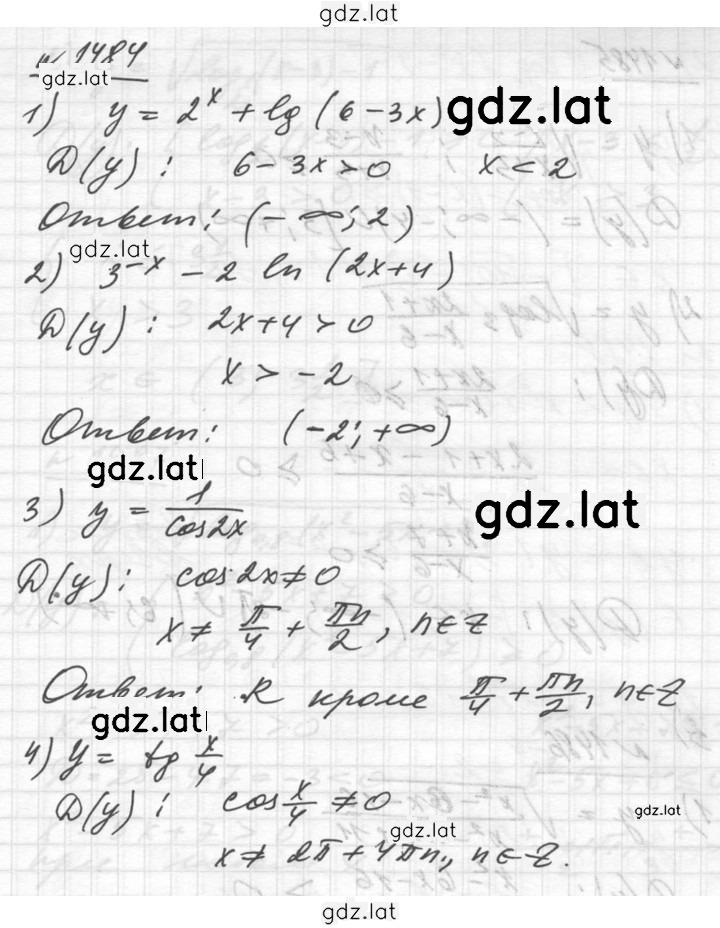 gdz.lat
№ 1484
gdz.lat
1) y = 2^x + lg (6 - 3x) gdz.lat
D(y) : 6 - 3x > 0 x < 2
Ответ: (-∞; 2)
gdz.lat
2) 3^{-x} - 2 ln (2x+4)
D(y) : 2x+4 > 0
x > -2
Ответ: (-2; +∞)
gdz.lat
3) y = 1/cos2x gdz.lat
D(y) : cos 2x ≠ 0
x ≠ π/4 + πn/2, n∈Z
Ответ: R кроме π/4 + πn/2, n∈Z
gdz.lat
4) y = tg x/4
D(y) : cos x/4 ≠ 0 gdz.lat
gdz.lat
x ≠ 2π + 4πn, n∈Z.
gdz.lat